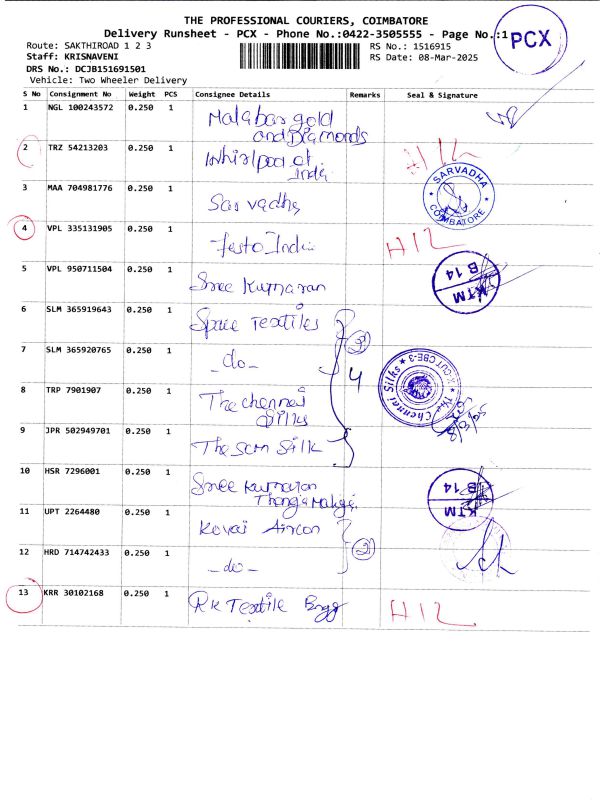 THE PROFESSIONAL COURIERS, COIMBATORE
Delivery Runsheet - PCX - Phone No.:0422-3505555 - Page No.:1
PCX
Route: SAKTHIROAD 1 2 3
RS No.: 1516915
Staff: KRISNAVENI
RS Date: 08-Mar-2025
DRS No.: DCJB151691501
Vehicle: Two Wheeler Delivery
S No Consignment No Weight PCS Consignee Details Remarks Seal & Signature
1 NGL 100243572 0.250 1 Malabar gold
and Diamonds
2 TRZ 54213203 0.250 1 Whirlpool of
India
3 MAA 704981776 0.250 1 Sarvadha
SARVADHA
COIMBATORE
4 VPL 335131905 0.250 1 Festo India H12
5 VPL 950711504 0.250 1 Sree Kumaran
KTM
B 14
6 SLM 365919643 0.250 1 Textiles
2
7 SLM 365920765 0.250 1 -do-
4
The Chennai Silks
8 TRP 7901907 0.250 1 The chennai
Silks
8/3/25
9 JPR 502949701 0.250 1 The SCM Silk
10 HSR 7296001 0.250 1 Sree Kumaran
Thanga Maligai
KTM
B 14
11 UPT 2264480 0.250 1 Kovai Aircon
2
12 HRD 714742433 0.250 1 -do-
13 KRR 30102168 0.250 1 RK Textile H12